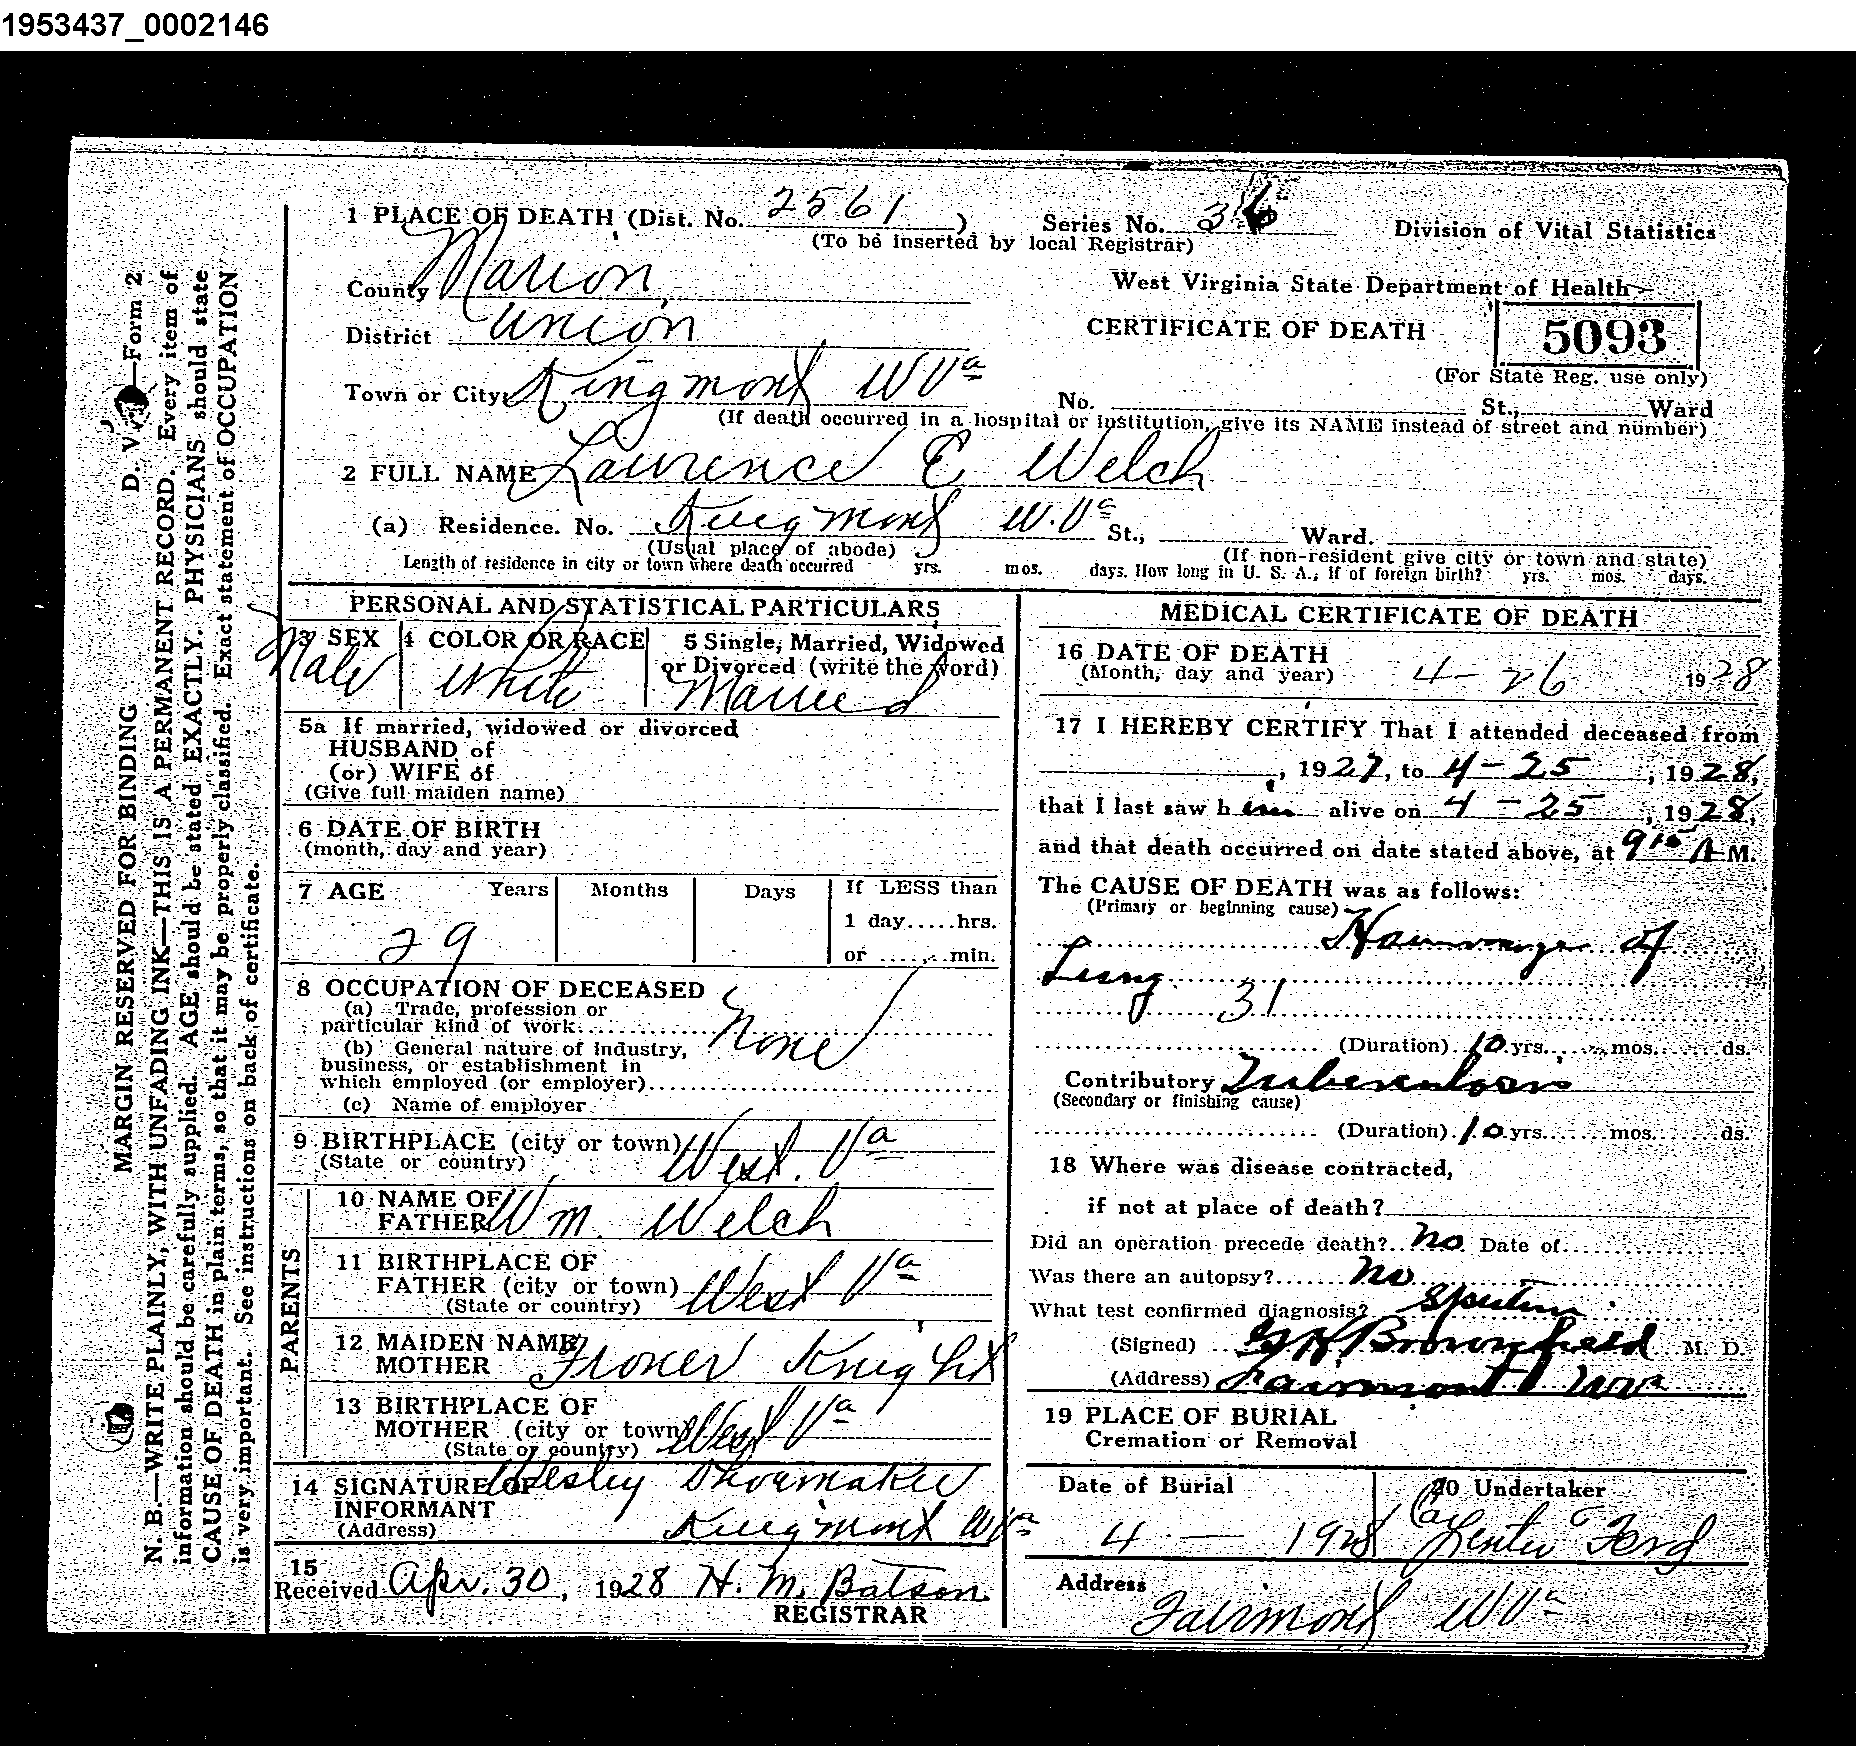 1953437_0002146
1 PLACE OF DEATH (Dist. No. 2561 ) Series No. 36 Division of Vital Statistics
(To be inserted by local Registrar)
County Marion West Virginia State Department of Health
District Union CERTIFICATE OF DEATH 5093
(For State Reg. use only)
Town or City Kingmont W Va No. St., Ward
(If death occurred in a hospital or institution, give its NAME instead of street and number)
2 FULL NAME Lawrence E Welch
(a) Residence. No. Kingmont W.Va St., Ward.
(Usual place of abode) (If non-resident give city or town and state)
Length of residence in city or town where death occurred yrs. mos. days. How long in U. S. A., if of foreign birth? yrs. mos. days.
PERSONAL AND STATISTICAL PARTICULARS
3 SEX 4 COLOR OR RACE 5 Single, Married, Widowed
or Divorced (write the word)
Male White Married
5a If married, widowed or divorced
HUSBAND of
(or) WIFE of
(Give full maiden name)
6 DATE OF BIRTH
(month, day and year)
7 AGE Years Months Days If LESS than
1 day.....hrs.
29
or ......min.
8 OCCUPATION OF DECEASED
(a) Trade, profession or
particular kind of work None
(b) General nature of industry,
business, or establishment in
which employed (or employer)
(c) Name of employer
9 BIRTHPLACE (city or town) West. Va
(State or country)
PARENTS
10 NAME OF
FATHER Wm. Welch
11 BIRTHPLACE OF
FATHER (city or town) West Va
(State or country)
12 MAIDEN NAME
MOTHER Knight
13 BIRTHPLACE OF
MOTHER (city or town) West Va
(State or country)
14 SIGNATURE OF Wesley Shoemaker
INFORMANT
(Address) Kingmont W Va
15
Received Apr. 30, 1928 H. M. Batson
REGISTRAR
MEDICAL CERTIFICATE OF DEATH
16 DATE OF DEATH
(Month, day and year) 4-26 1928
17 I HEREBY CERTIFY That I attended deceased from
, 1927, to 4-25, 1928,
that I last saw him alive on 4-25, 1928,
and that death occurred on date stated above, at 9 15 A M.
The CAUSE OF DEATH was as follows:
(Primary or beginning cause)
of
Lung
31
(Duration) 10 yrs. mos. ds.
Contributory Tuberculosis
(Secondary or finishing cause)
(Duration) 10 yrs. mos. ds.
18 Where was disease contracted,
if not at place of death?
Did an operation precede death? No Date of
Was there an autopsy? No
What test confirmed diagnosis? Sputum
(Signed) H Brownfield M. D.
(Address) Fairmont W Va
19 PLACE OF BURIAL
Cremation or Removal
Date of Burial 20 Undertaker
4 — 1928
Address
Fairmont W Va
D. V. —Form 2
MARGIN RESERVED FOR BINDING
N. B.—WRITE PLAINLY, WITH UNFADING INK—THIS IS A PERMANENT RECORD. Every item of
information should be carefully supplied. AGE should be stated EXACTLY. PHYSICIANS should state
CAUSE OF DEATH in plain terms, so that it may be properly classified. Exact statement of OCCUPATION
is very important. See instructions on back of certificate.